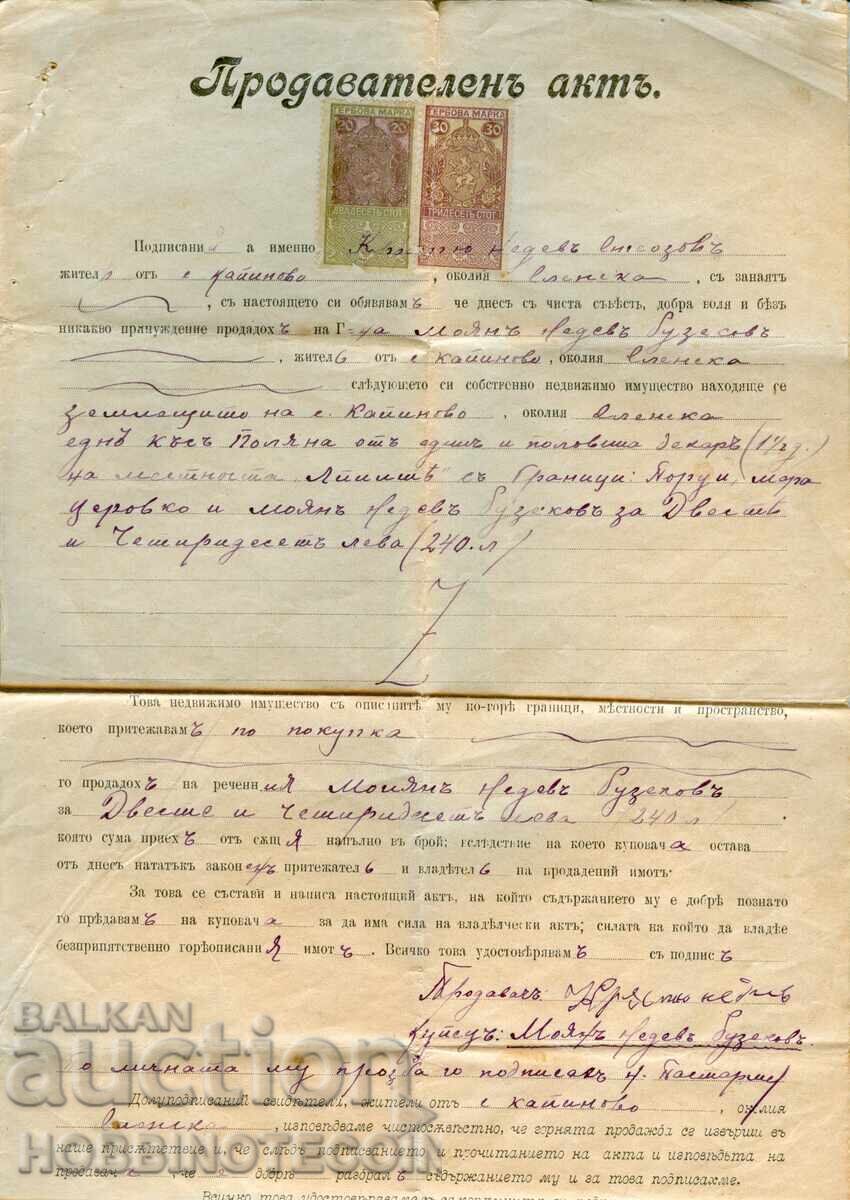 Продавателенъ актъ.
20 20
30 30
ГЕРБОВА МАРКА
ГЕРБОВА МАРКА
ДВАДЕСЕТЬ СТОТ.
ТРИДЕСЕТЬ СТОТ.
Подписания а именно Недевъ
жител отъ с Капиново, околия Еленска, съ занаятъ
, съ настоящето си обявявамъ че днесъ съ чиста съвѣсть, добра воля и безъ
никакво принуждение продадохъ на Г-на Моянъ Недевъ Бузековъ
, жителъ отъ с Капиново, околия Еленска
слѣдующето си собственно недвижимо имущество находяще се
землището на с. Капиново, околия Еленска
еднъ късъ Поляна отъ единъ и половина декаръ (1½ д.)
на местноста съ граници: Мара
Церовко и Моянъ Недевъ Бузековъ за Двестѣ
и Четиридесетъ лева (240.л)
Това недвижимо имущество съ описанитѣ му по-горѣ граници, мѣстности и пространство,
което притежавамъ по покупка
го продадохъ на речения Моянъ Недевъ Бузековъ
за Двесте и Четиридесетъ лева (240 л)
която сума приехъ отъ сѫщия напълно въ брой; вслѣдствие на което купувача остава
отъ днесъ нататъкъ законенъ притежателъ и владѣтелъ на продадений имотъ.
За това се състави и написа настоящий актъ, на който съдържанието му е добрѣ познато
го прѣдавамъ на купувача за да има сила на владѣлчески актъ; силата на който да владѣе
безприпятственно горѣописания имотъ. Всичко това удостовѣрявамъ съ подписъ
Продавачъ: Недевъ
купецъ: Моянъ Недевъ Бузековъ.
По личната му прозба го подписахъ
Долуподписаний свидѣтели, жители отъ с Капиново, околия
Еленска, изповѣдваме чистосъвѣстно, че горнята продажба се извърши въ
наше присѫтствие и, че слѣдъ подписванието и прочитанието на акта и изповѣдьта на
продавача, че я добрѣ разбралъ съдържанието му и за това подписахме.
BALKAN
auction
HOBBINOTECOM